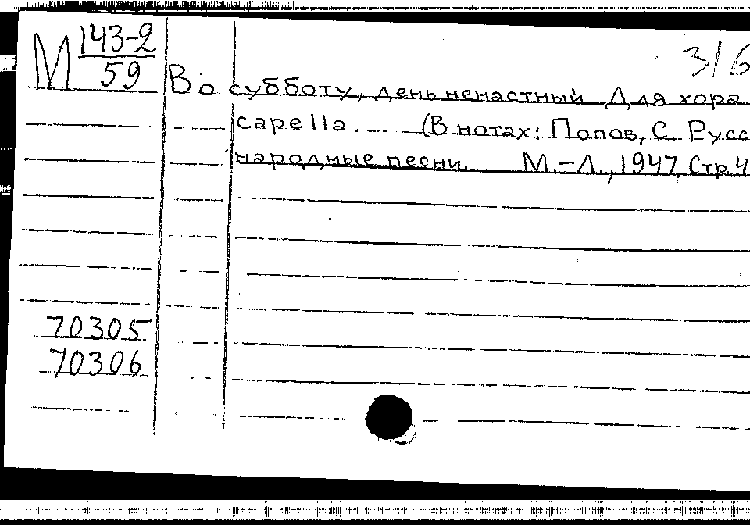 М 143-2
59
3/6
Во субботу, день ненастный Для хора
capella. (В нотах: Попов, С. Русс
народные песни. М.-Л., 1947, Стр. 4
70305
70306